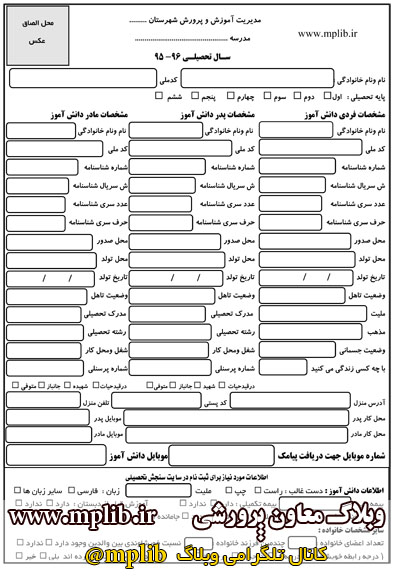 محل الصاق
عکس
مدیریت آموزش و پرورش شهرستان .........
مدرسه ...............................
www.mplib.ir
سـال تحصیلـی ۹۶- ۹۵
نام ونام خانوادگی : کدملی :
پایه تحصیلی : اول دوم سوم چهارم پنجم ششم
مشخصات فردی دانش آموز مشخصات پدر دانش آموز مشخصات مادر دانش آموز
نام ونام خانوادگی نام ونام خانوادگی نام ونام خانوادگی
کد ملی کد ملی کد ملی
شماره شناسنامه شماره شناسنامه شماره شناسنامه
ش سریال شناسنامه ش سریال شناسنامه ش سریال شناسنامه
عدد سری شناسنامه عدد سری شناسنامه عدد سری شناسنامه
حرف سری شناسنامه حرف سری شناسنامه حرف سری شناسنامه
محل صدور محل صدور محل صدور
محل تولد محل تولد محل تولد
تاریخ تولد / / تاریخ تولد / / تاریخ تولد / /
وضعیت تاهل وضعیت تاهل وضعیت تاهل
ملیت مدرک تحصیلی مدرک تحصیلی
مذهب رشته تحصیلی رشته تحصیلی
وضعیت جسمانی شغل ومحل کار شغل ومحل کار
با چه کسی زندگی می کنید شماره پرسنلی شماره پرسنلی
درقیدحیات شهید جانباز متوفی درقیدحیات شهیده جانباز متوفی
آدرس منزل کد پستی تلفن منزل
محل کار پدر موبایل پدر
محل کار مادر موبایل مادر
شماره موبایل جهت دریافت پیامک موبایل دانش آموز
اطلاعات مورد نیاز برای ثبت نام در سایت سنجش تحصیلی
اطلاعات دانش آموز : دست غالب : راست چپ ملیت زبان : فارسی سایر زبان ها
وبلاگ معاون پرورشی www.mplib.ir
کانال تلگرامی وبلاگ @mplib